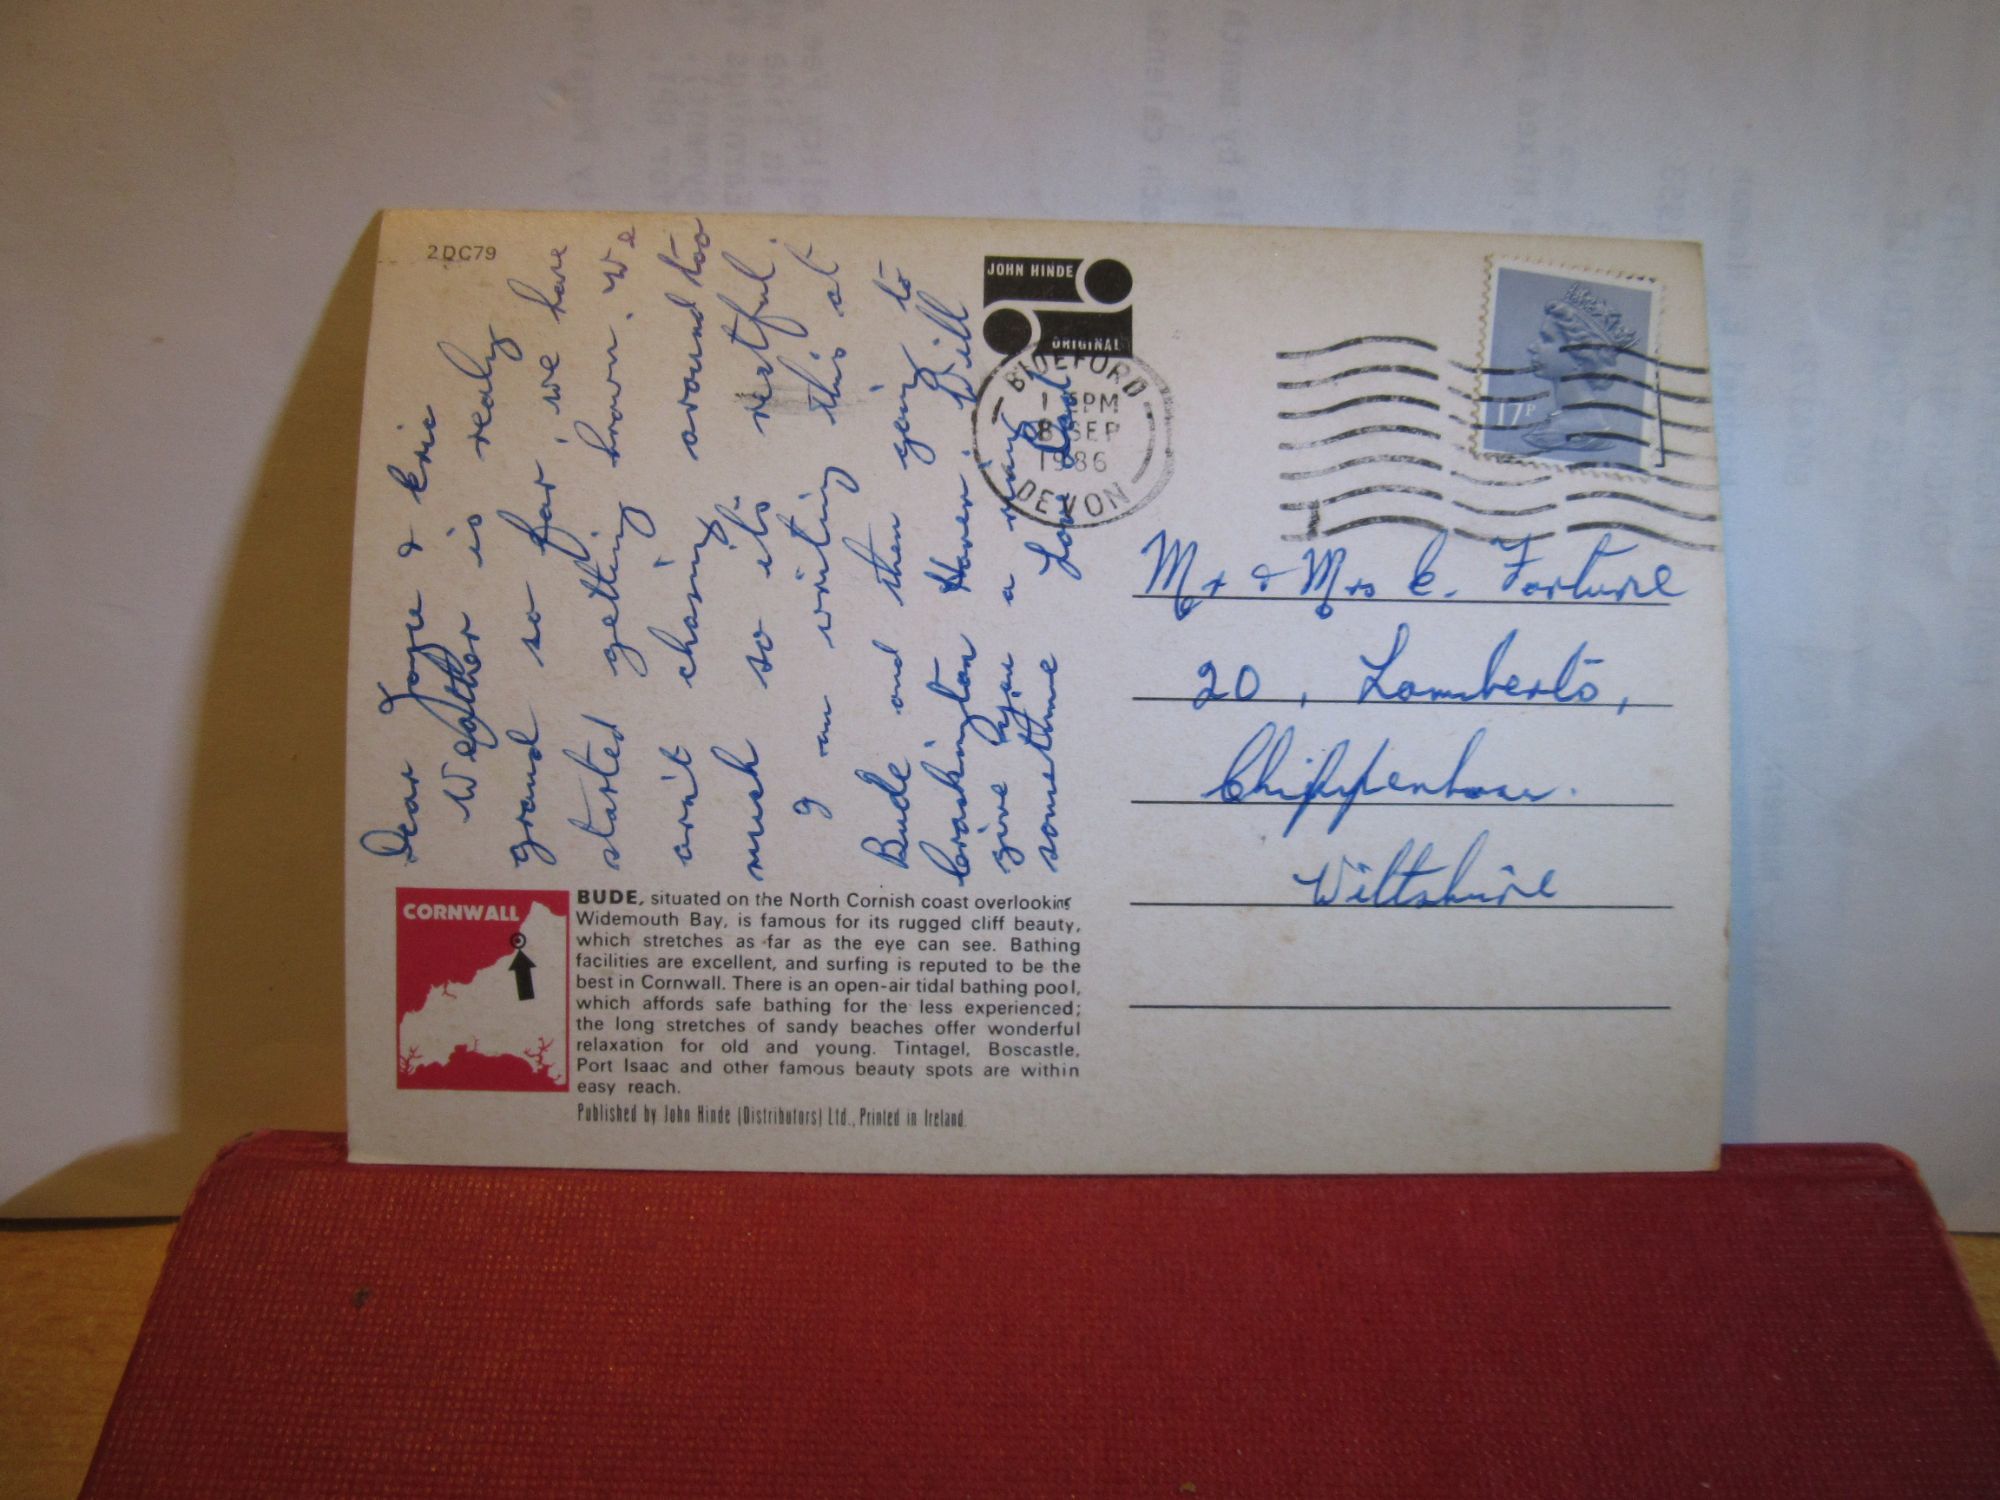 2DC79
Dear Joyce & Eric
Weather is realy
grand so far, we have
started getting brown. We
arn't chasing around too
much so it's restful.
I am writing this at
Bude and then going to
Crackington Haven. Will
give you a ring
sometime Love Dad
JOHN HINDE
ORIGINAL
BIDEFORD
PM
8 SEP
1986
DEVON
17P
Mr & Mrs E. Fortune
20, Lamberts,
Chippenham.
Wiltshire
CORNWALL
BUDE, situated on the North Cornish coast overlooking
Widemouth Bay, is famous for its rugged cliff beauty,
which stretches as far as the eye can see. Bathing
facilities are excellent, and surfing is reputed to be the
best in Cornwall. There is an open-air tidal bathing pool,
which affords safe bathing for the less experienced;
the long stretches of sandy beaches offer wonderful
relaxation for old and young. Tintagel, Boscastle,
Port Isaac and other famous beauty spots are within
easy reach.
Published by John Hinde (Distributors) Ltd., Printed in Ireland